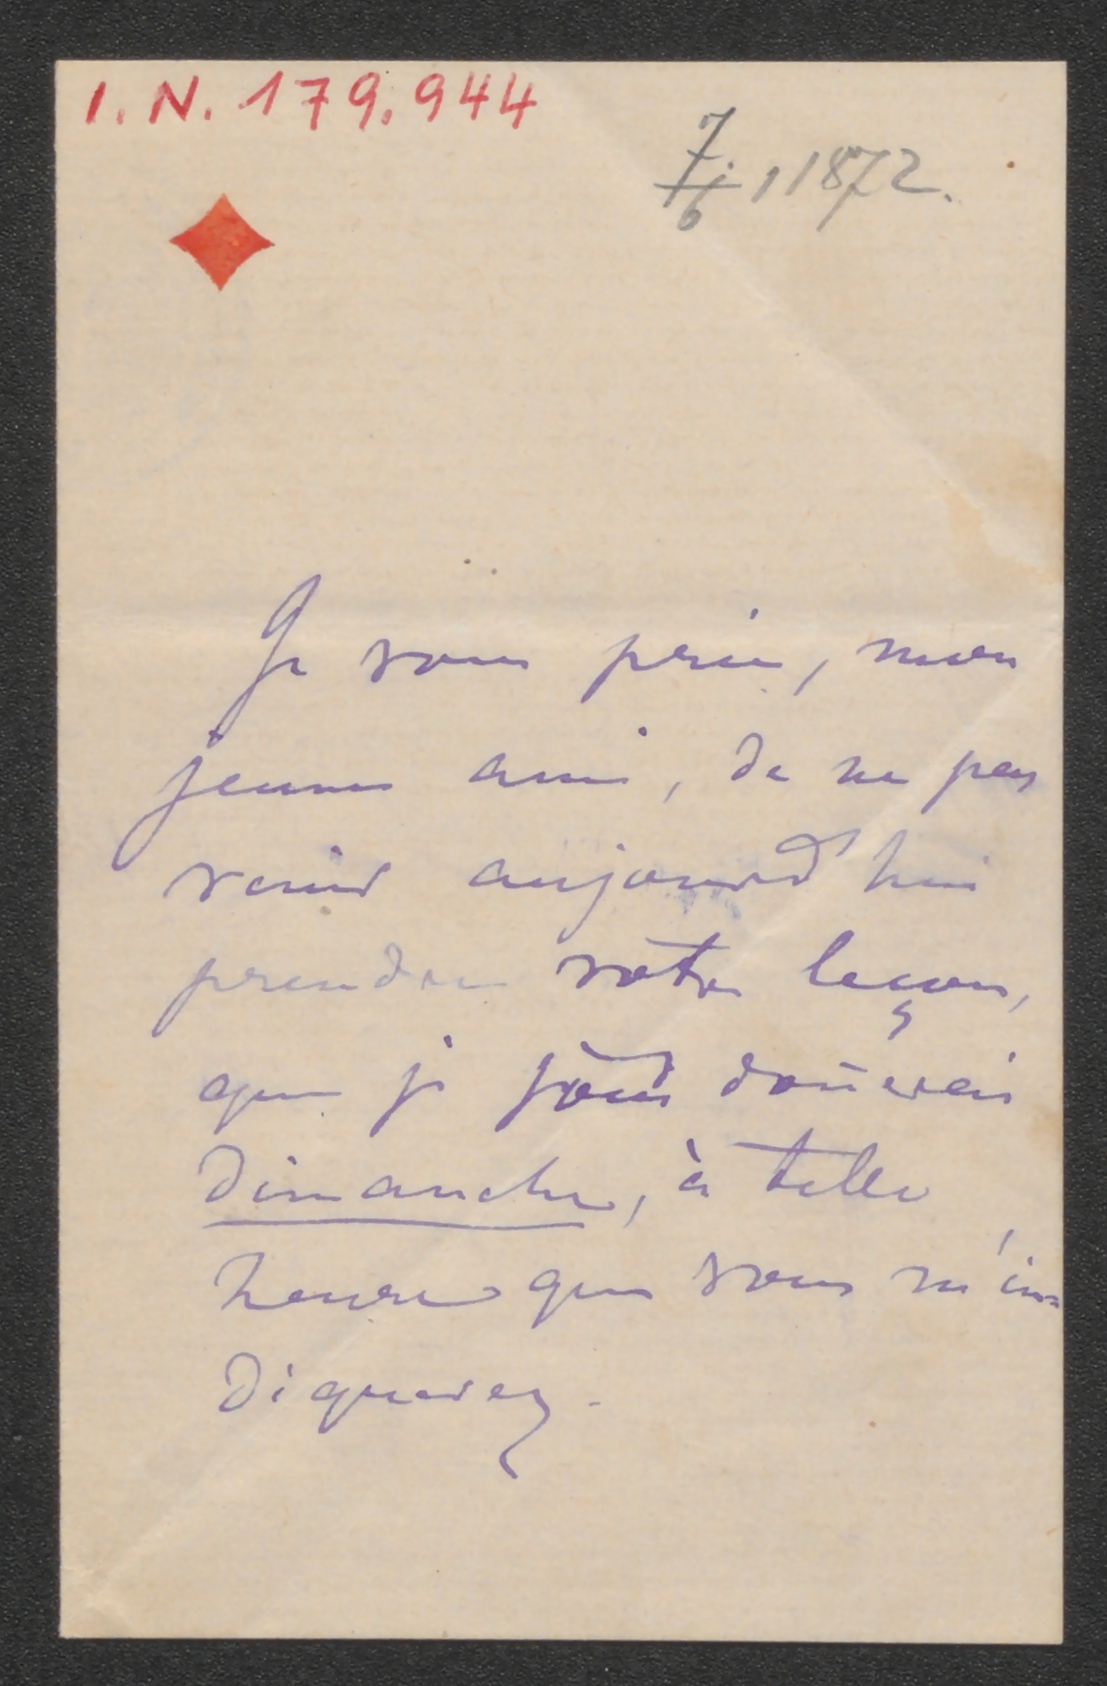 I.N. 179.944
7./6, 1872.
Je vous prie, mon
jeune ami, de ne pas
venir aujourd'hui
prendre votre leçon,
que je vous don̄erai
dimanche, à telle
heure que vous m'in=
diquerez.